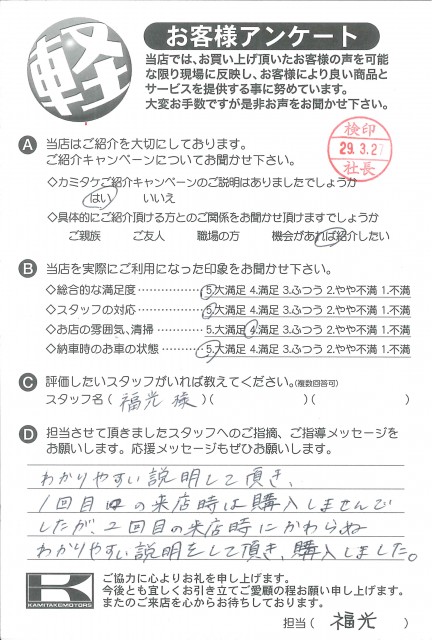 軽
お客様アンケート
当店では、お買い上げ頂いたお客様の声を可能
な限り現場に反映し、お客様により良い商品と
サービスを提供する事に努めています。
大変お手数ですが是非お声をお聞かせ下さい。
検印
29.3.27
社長
A 当店はご紹介を大切にしております。
ご紹介キャンペーンについてお聞かせ下さい。
◇カミタケご紹介キャンペーンのご説明はありましたでしょうか
はい いいえ
◇具体的にご紹介頂ける方とのご関係をお聞かせ頂けますでしょうか
ご親族 ご友人 職場の方 機会があれば紹介したい
B 当店を実際にご利用になった印象をお聞かせ下さい。
◇総合的な満足度……………5.大満足 4.満足 3.ふつう 2.やや不満 1.不満
◇スタッフの対応……………5.大満足 4.満足 3.ふつう 2.やや不満 1.不満
◇お店の雰囲気、清掃………5.大満足 4.満足 3.ふつう 2.やや不満 1.不満
◇納車時のお車の状態………5.大満足 4.満足 3.ふつう 2.やや不満 1.不満
C 評価したいスタッフがいれば教えてください。(複数回答可)
スタッフ名( 福光 様 )( )( )
D 担当させて頂きましたスタッフへのご指摘、ご指導メッセージを
お願いします。応援メッセージもぜひお願いします。
わかりやすい説明して頂き、
1回目の来店時は購入しませんで
したが、2回目の来店時にかわらぬ
わかりやすい説明をして頂き、購入しました。
K
KAMITAKEMOTORS
ご協力に心よりお礼を申し上げます。
今後とも宜しくお引き立てご愛顧の程お願い申し上げます。
またのご来店を心からお待ちしております。
担当( 福光 )